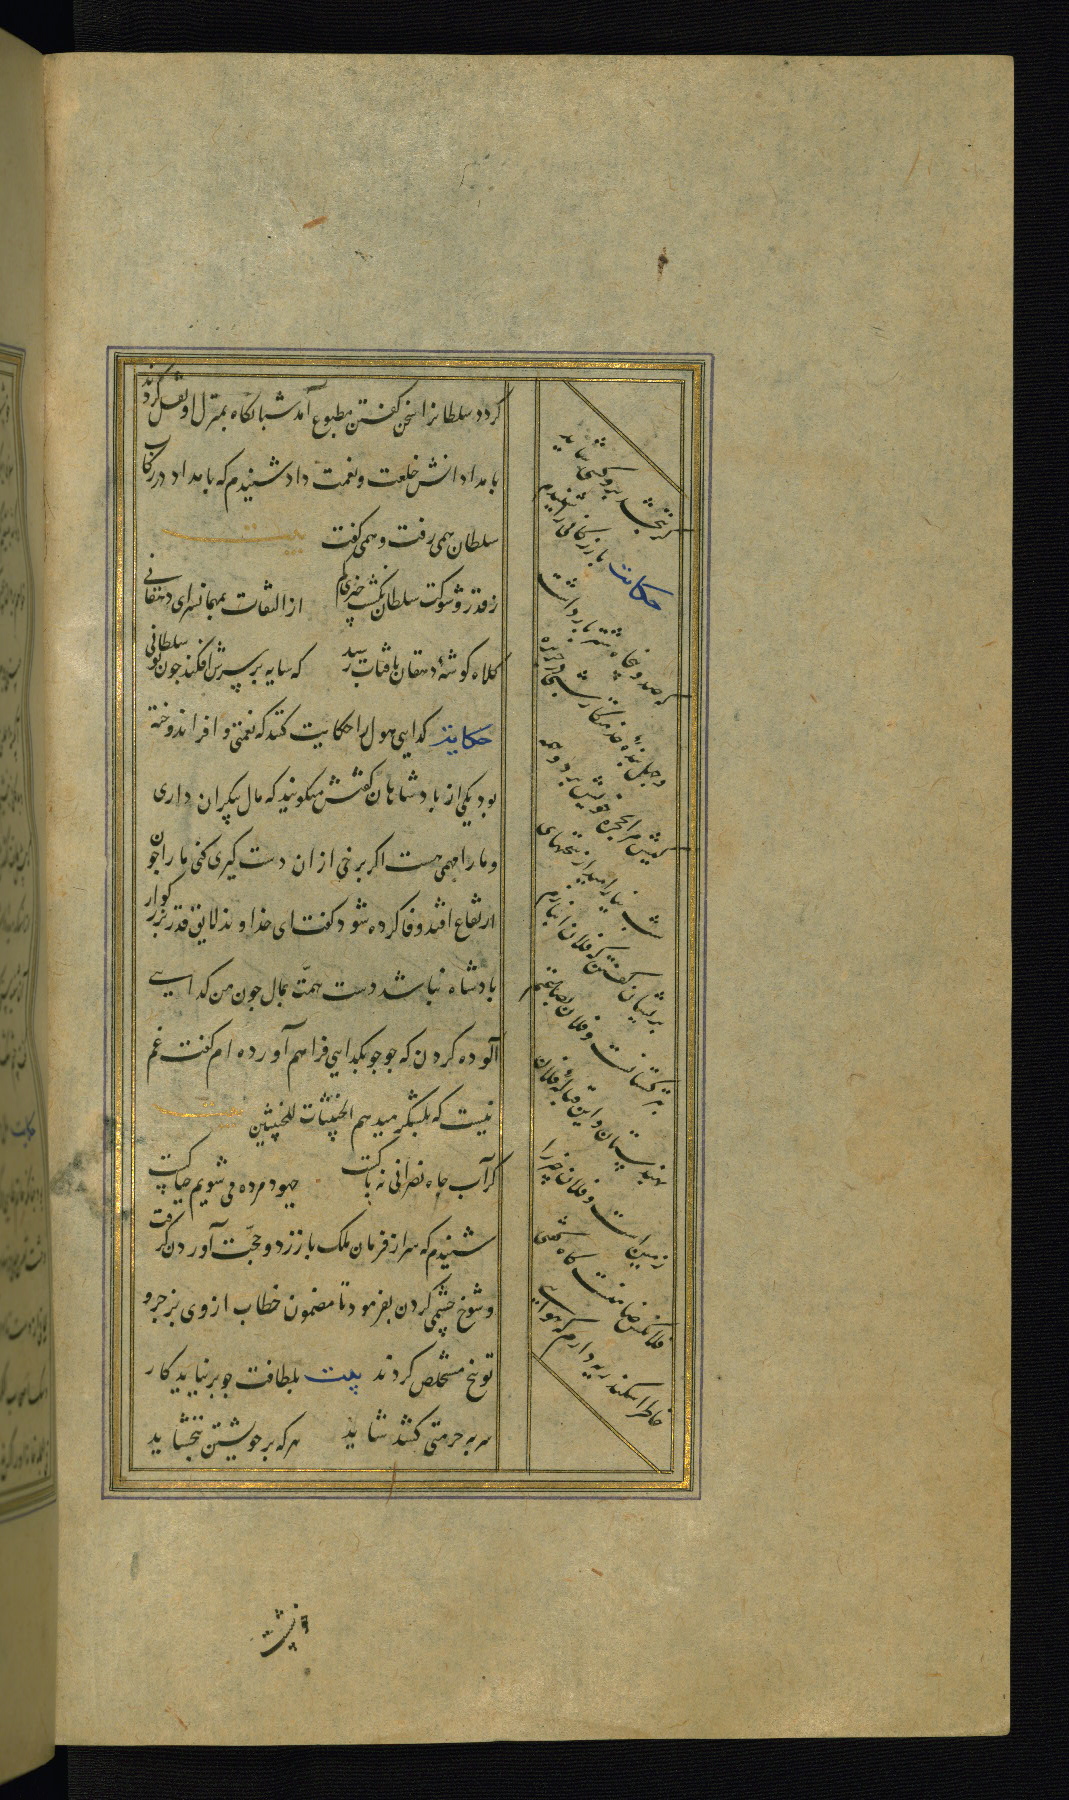 کردد سلطانرا سخن کفتن مطبوع آمد شبانکاه بمنزل او نقل کردند
بامدادانش خلعت و نعمت داد شنیدم که بامداد در رکاب
سلطان همی رفت و همی کفت بیت
ز قدر و شوکت سلطان نکشت چیزی کم از التفات بمهمانسرای دهقانی
کلاه کوشهٔ دهقان بافتاب رسید که سایه بر سرش افکند جون تو سلطانی
حکایت کدایی هول را حکایت کنند که نعمتی وافر اندوخته
بود یکی از بادشاهان کفتش میکویند که مال بیکران داری
و ما را مهمی هست اکر برخی ازان دست کیری کنی ما را جون
ارتفاع افتد وفا کرده شود کفت ای خداوند لایق قدر بزرکوار
بادشاه نباشد دست همّت بمال جون من کدایی
آلوده کردن که جو جو بکدایی فراهم آورده ام کفت غم
نیست که بکبر میدهم الخبیثات للخبیثین بیت
کر آب چاه نصرانی نه باکست جهود مرده می شویم چه باکست
شنیدم که سر از فرمان ملک باز زد و حجّت آوردن کرفت
و شوخ چشمی کردن بفرمود تا مضمون خطاب ازوی بزجر و
توبیخ مستخلص کردند بیت بلطافت جو بر نیاید کار
سر به بی حرمتی کشد ناید هر که بر خویشتن نبخشاید
کر نبخشد برو کسی شاید
حکایت بازرکانی را شنیدم
که صد و بنجاه شتر بار داشت
و چهل بنده خدمتکار شبی در جزیره
کیش مرا بحجره خویش برد و همه
شب نیارامید از سخنهای
بریشان کفتن که فلان انبازم
بترکستانست و فلان بضاعتم
بهندوستان و این قباله فلان
زمین است و فلان چیز را
فلان کس ضامنست کاه کفتی
خاطر اسکندریه دارم که هوایی